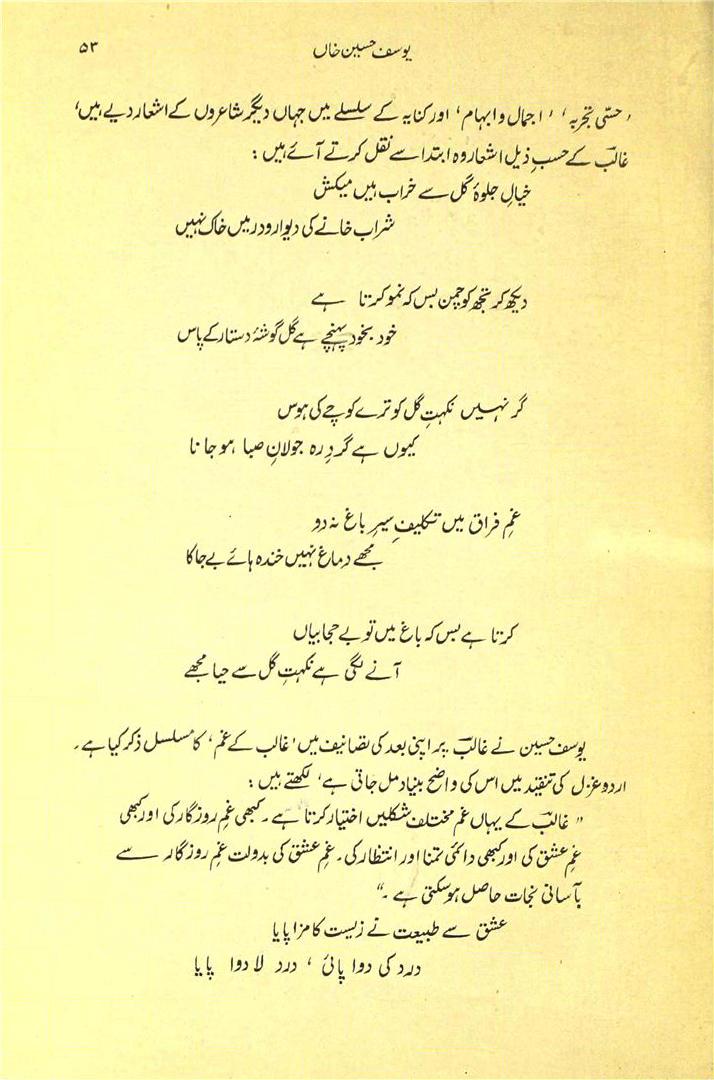 یوسف حسین خاں ۵۳
’حسّی تجربہ‘ ’اجمال و ابہام‘ اور کنایہ کے سلسلے میں جہاں دیگر شاعروں کے اشعار دیے ہیں،
غالبؔ کے حسبِ ذیل اشعار وہ ابتدا سے نقل کرتے آئے ہیں :
خیالِ جلوۂ گل سے خراب ہیں میکش
شراب خانے کی دیوار و در میں خاک نہیں
دیکھ کر تجھ کو چمن بس کہ نمو کرتا ہے
خود بخود پہنچے ہے گل گوشۂ دستار کے پاس
گر نہیں نکہتِ گل کو ترے کوچے کی ہوس
کیوں ہے گردِ رہ جولانِ صبا ہو جانا
غمِ فراق میں تکلیفِ سیرِ باغ نہ دو
مجھے دماغ نہیں خندہ ہائے بے جا کا
کرتا ہے بس کہ باغ میں تو بے حجابیاں
آنے لگی ہے نکہتِ گل سے حیا مجھے
یوسف حسین نے غالبؔ پر اپنی بعد کی تصانیف میں ’غالب کے غم‘ کا مسلسل ذکر کیا ہے۔
اردو غزل کی تنقید میں اس کی واضح بنیاد مل جاتی ہے، لکھتے ہیں :
”غالبؔ کے یہاں غم مختلف شکلیں اختیار کرتا ہے۔ کبھی غمِ روزگار کی اور کبھی
غمِ عشق کی اور کبھی دائمی تمنا اور انتظار کی۔ غمِ عشق کی بدولت غمِ روزگار سے
بآسانی نجات حاصل ہو سکتی ہے۔“
عشق سے طبیعت نے زیست کا مزا پایا
درد کی دوا پائی ، درد لا دوا پایا